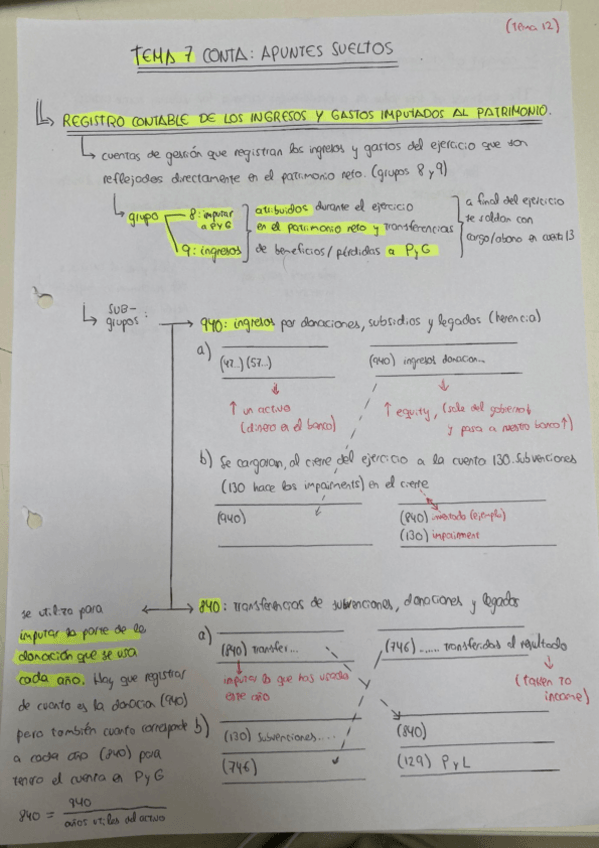 (Tema 12)
TEMA 7 CONTA: APUNTES SUELTOS
REGISTRO CONTABLE DE LOS INGRESOS Y GASTOS IMPUTADOS AL PATRIMONIO.
cuentas de gestión que registran los ingresos y gastos del ejercicio que son
reflejados directamente en el patrimonio neto. (grupos 8 y 9)
grupo
8: imputar
a PyG
9: ingresos
atribuidos durante el ejercicio
en el patrimonio neto y transferencias
de beneficios/pérdidas a PyG
a final del ejercicio
se saldan con
cargo/abono en cuenta 13
SUB-
grupos:
940: ingresos por donaciones, subsidios y legados (herencia)
a)
(47..) (57..)
(940) ingresos donacion...
↑ un activo
(dinero en el banco)
↑ equity, (sale del gobierno↓
y pasa a nuestro banco↑)
b) Se cargaran, al cierre del ejercicio a la cuenta 130. Subvenciones
(130 hace los impairments) en el cierre
(940)
(840) inventado (ejemplo)
(130) impairment
840: transferencias de subvenciones, donaciones y legados
a)
(840) transfer...
(746) ...... transferidos al resultado
imputar lo que has usado
este año
(taken to
income)
b)
(130) subvenciones....
(840)
(746)
(129) P y L
se utiliza para
imputar la parte de la
donación que se usa
cada año. Hay que registrar
de cuanto es la donacion (940)
pero también cuanto corresponde
a cada año (840) para
tenerlo el cuenta en PyG
840 = 940
años utiles del activo